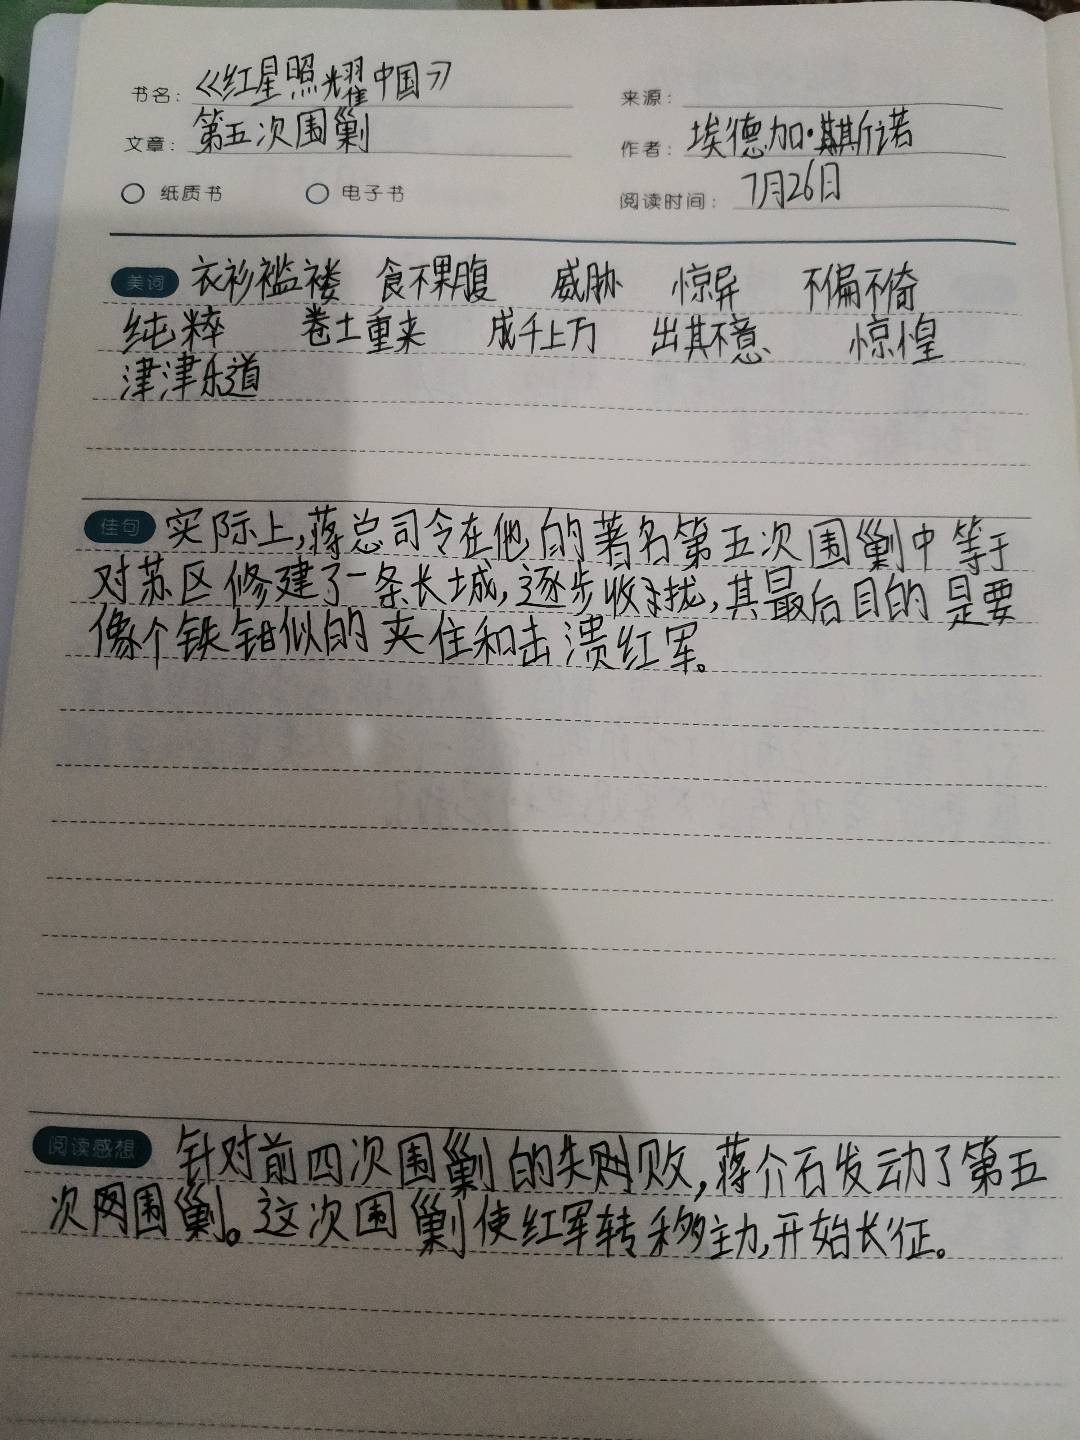 书名：《红星照耀中国》
来源：
文章：第五次围剿
作者：埃德加·斯诺
纸质书 电子书
阅读时间：7月26日
美词 衣衫褴褛 食不果腹 威胁 惊异 不偏不倚
纯粹 卷土重来 成千上万 出其不意、 惊惶
津津乐道
佳句 实际上,蒋总司令在他的著名第五次围剿中等于
对苏区修建了一条长城,逐步收拢,其最后目的是要
像个铁钳似的夹住和击溃红军。
阅读感想 针对前四次围剿的失败,蒋介石发动了第五
次网围剿。这次围剿使红军转移主力,开始长征。